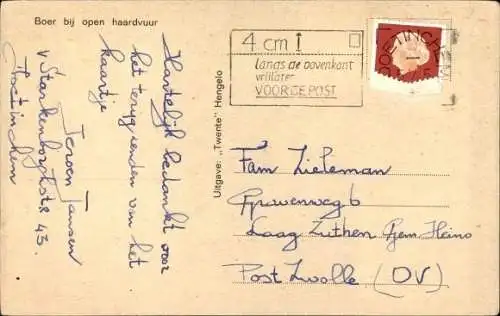 Boer bij open haardvuur
Hartelijk bedankt voor
het terugzenden van het
kaartje
Jeroen Jansen
v Starkenborghstr 43.
Doetinchem
Uitgave: „Twente" Hengelo
4 cm
langs de bovenkant
vrijlaten
VOOR DE POST
DOETINCHEM
Fam Zieleman
Gravenweg 6
Laag Zuthem Gem Heino
Post Zwolle (OV)